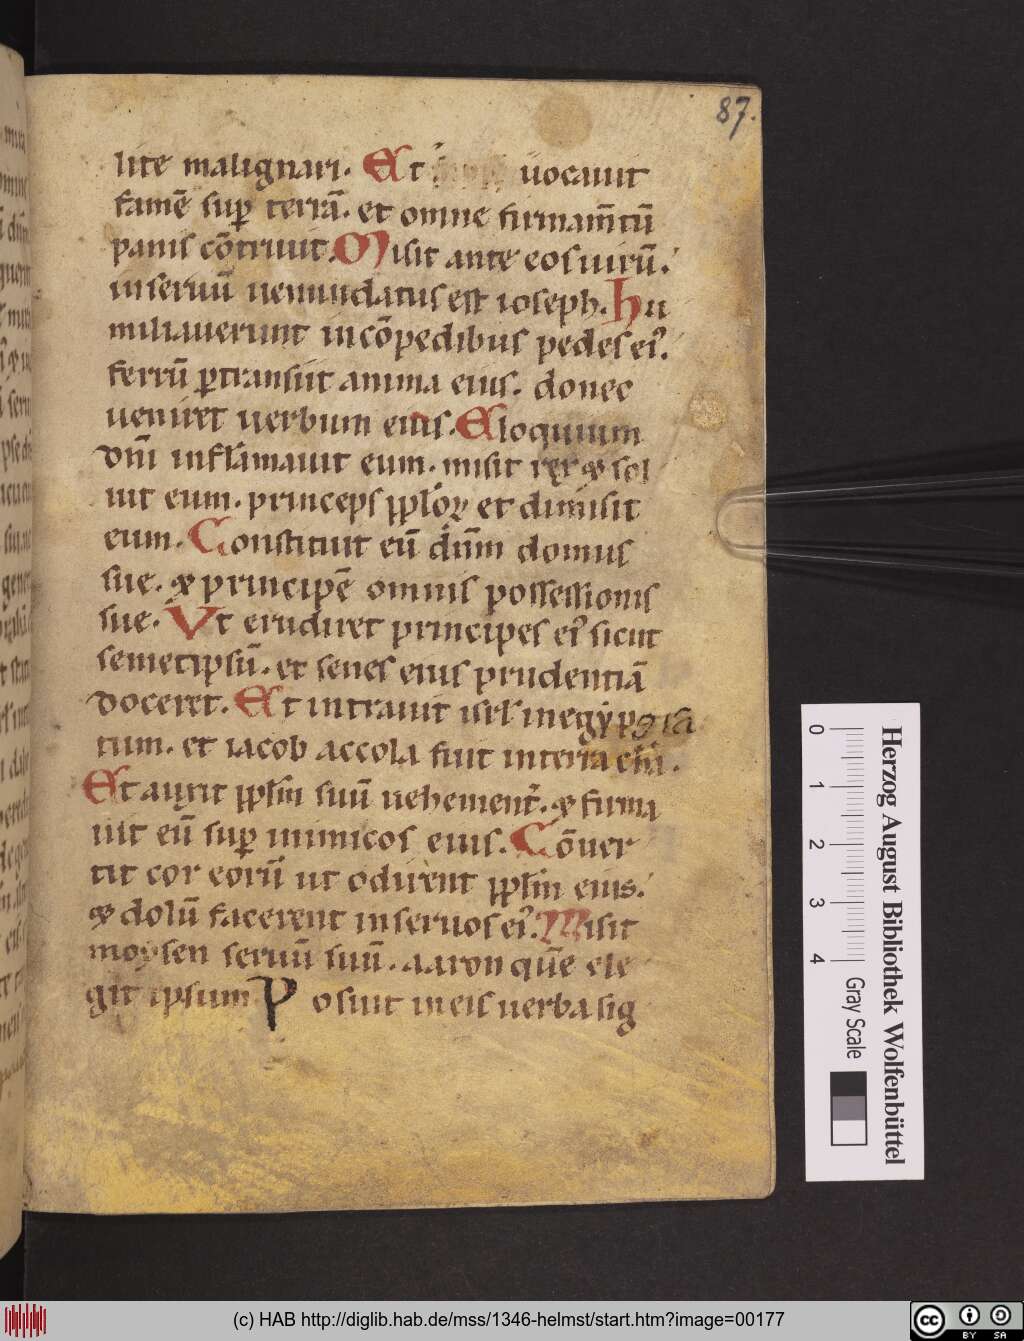 87.
lite malignari. Et uocauit
famē sup̄ terrā. et omne firmam̄tū
panis cōtriuit. Misit ante eos uirū.
in seruū uenundatus est ioseph. hu
miliauerunt in cōpedibus pedes ei᾽.
ferrū ꝑtransiit anima eius. donec
ueniret uerbum eius. Eloquium
dn̄i inflāmauit eum. misit rex & sol
uit eum. princeps ppl̄oꝝ et dimisit
eum. Constituit eū dn̄m domus
sue. & principē omnis possessionis
sue. Vt erudiret principes ei᾽ sicut
semetipsū. et senes eius prudentiā
doceret. Et intrauit isrl̄ in egyp
tum. et iacob accola fuit in terra chā.
Et auxit ppl̄m suū uehement᾽. & firma
uit eū sup̄ inimicos eius. Cōuer
tit cor eorū ut odirent ppl̄m eius.
& dolū facerent in seruos ei᾽. Misit
moysen seruū suū. aaron quē ele
git ipsum Posuit in eis uerba sig
Herzog August Bibliothek Wolfenbüttel
0 1 2 3 4 Gray Scale
(c) HAB http://diglib.hab.de/mss/1346-helmst/start.htm?image=00177
cc BY SA